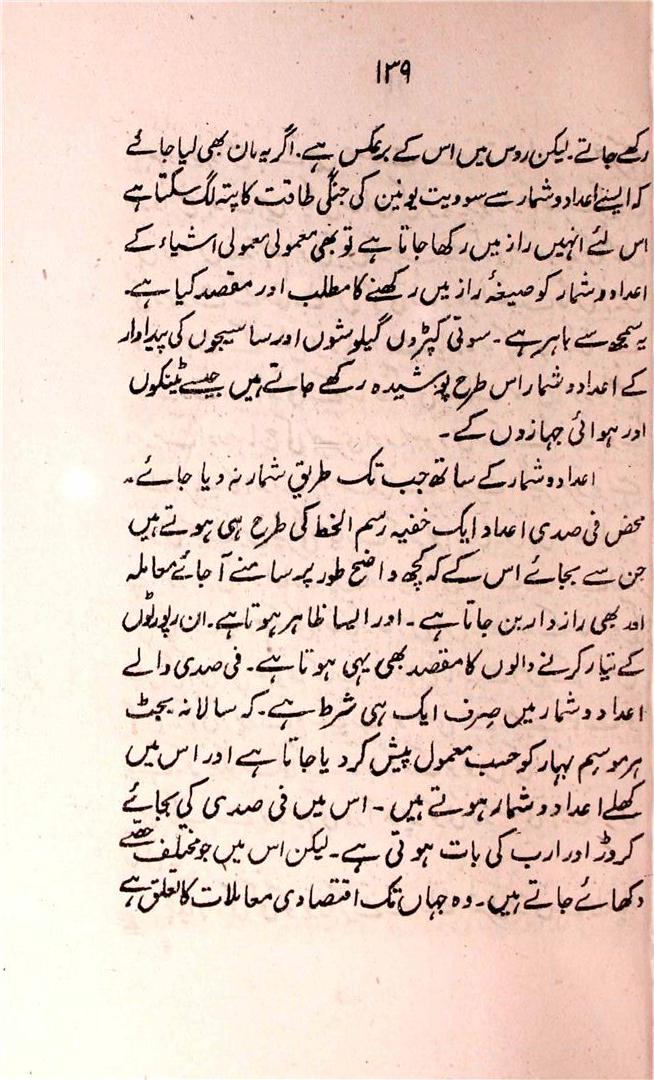 ۱۳۹
رکھے جاتے۔ لیکن روس میں اس کے برعکس ہے۔ اگر یہ مان بھی لیا جائے
کہ ایسے اعداد و شمار سے سوویت یونین کی جنگی طاقت کا پتہ لگ سکتا ہے
اس لئے انہیں راز میں رکھا جاتا ہے تو بھی معمولی معمولی اشیاء کے
اعداد و شمار کو صیغۂ راز میں رکھنے کا مطلب اور مقصد کیا ہے۔
یہ سمجھ سے باہر ہے۔ سوتی کپڑوں گیلوشوں اور ساسیجوں کی پیداوار
کے اعداد و شمار اس طرح پوشیدہ رکھے جاتے ہیں جیسے ٹینکوں
اور ہوائی جہازوں کے۔
اعداد و شمار کے ساتھ جب تک طریقِ شمار نہ دیا جائے۔
محض فی صدی اعداد ایک خفیہ رسم الخط کی طرح ہی ہوتے ہیں
جن سے بجائے اس کے کہ کچھ واضح طور پر سامنے آ جائے معاملہ
اور بھی رازدار بن جاتا ہے۔ اور ایسا ظاہر ہوتا ہے۔ ان رپورٹوں
کے تیار کرنے والوں کا مقصد بھی یہی ہوتا ہے۔ فی صدی والے
اعداد و شمار میں صِرف ایک ہی شرط ہے۔ کہ سالانہ بجٹ
ہر موسمِ بہار کو حسب معمول پیش کر دیا جاتا ہے اور اس میں
کھلے اعداد و شمار ہوتے ہیں۔ اس میں فی صدی کی بجائے
کروڑ اور ارب کی بات ہوتی ہے۔ لیکن اس میں جو مختلف حصّے
دکھائے جاتے ہیں۔ وہ جہاں تک اقتصادی معاملات کا تعلق ہے